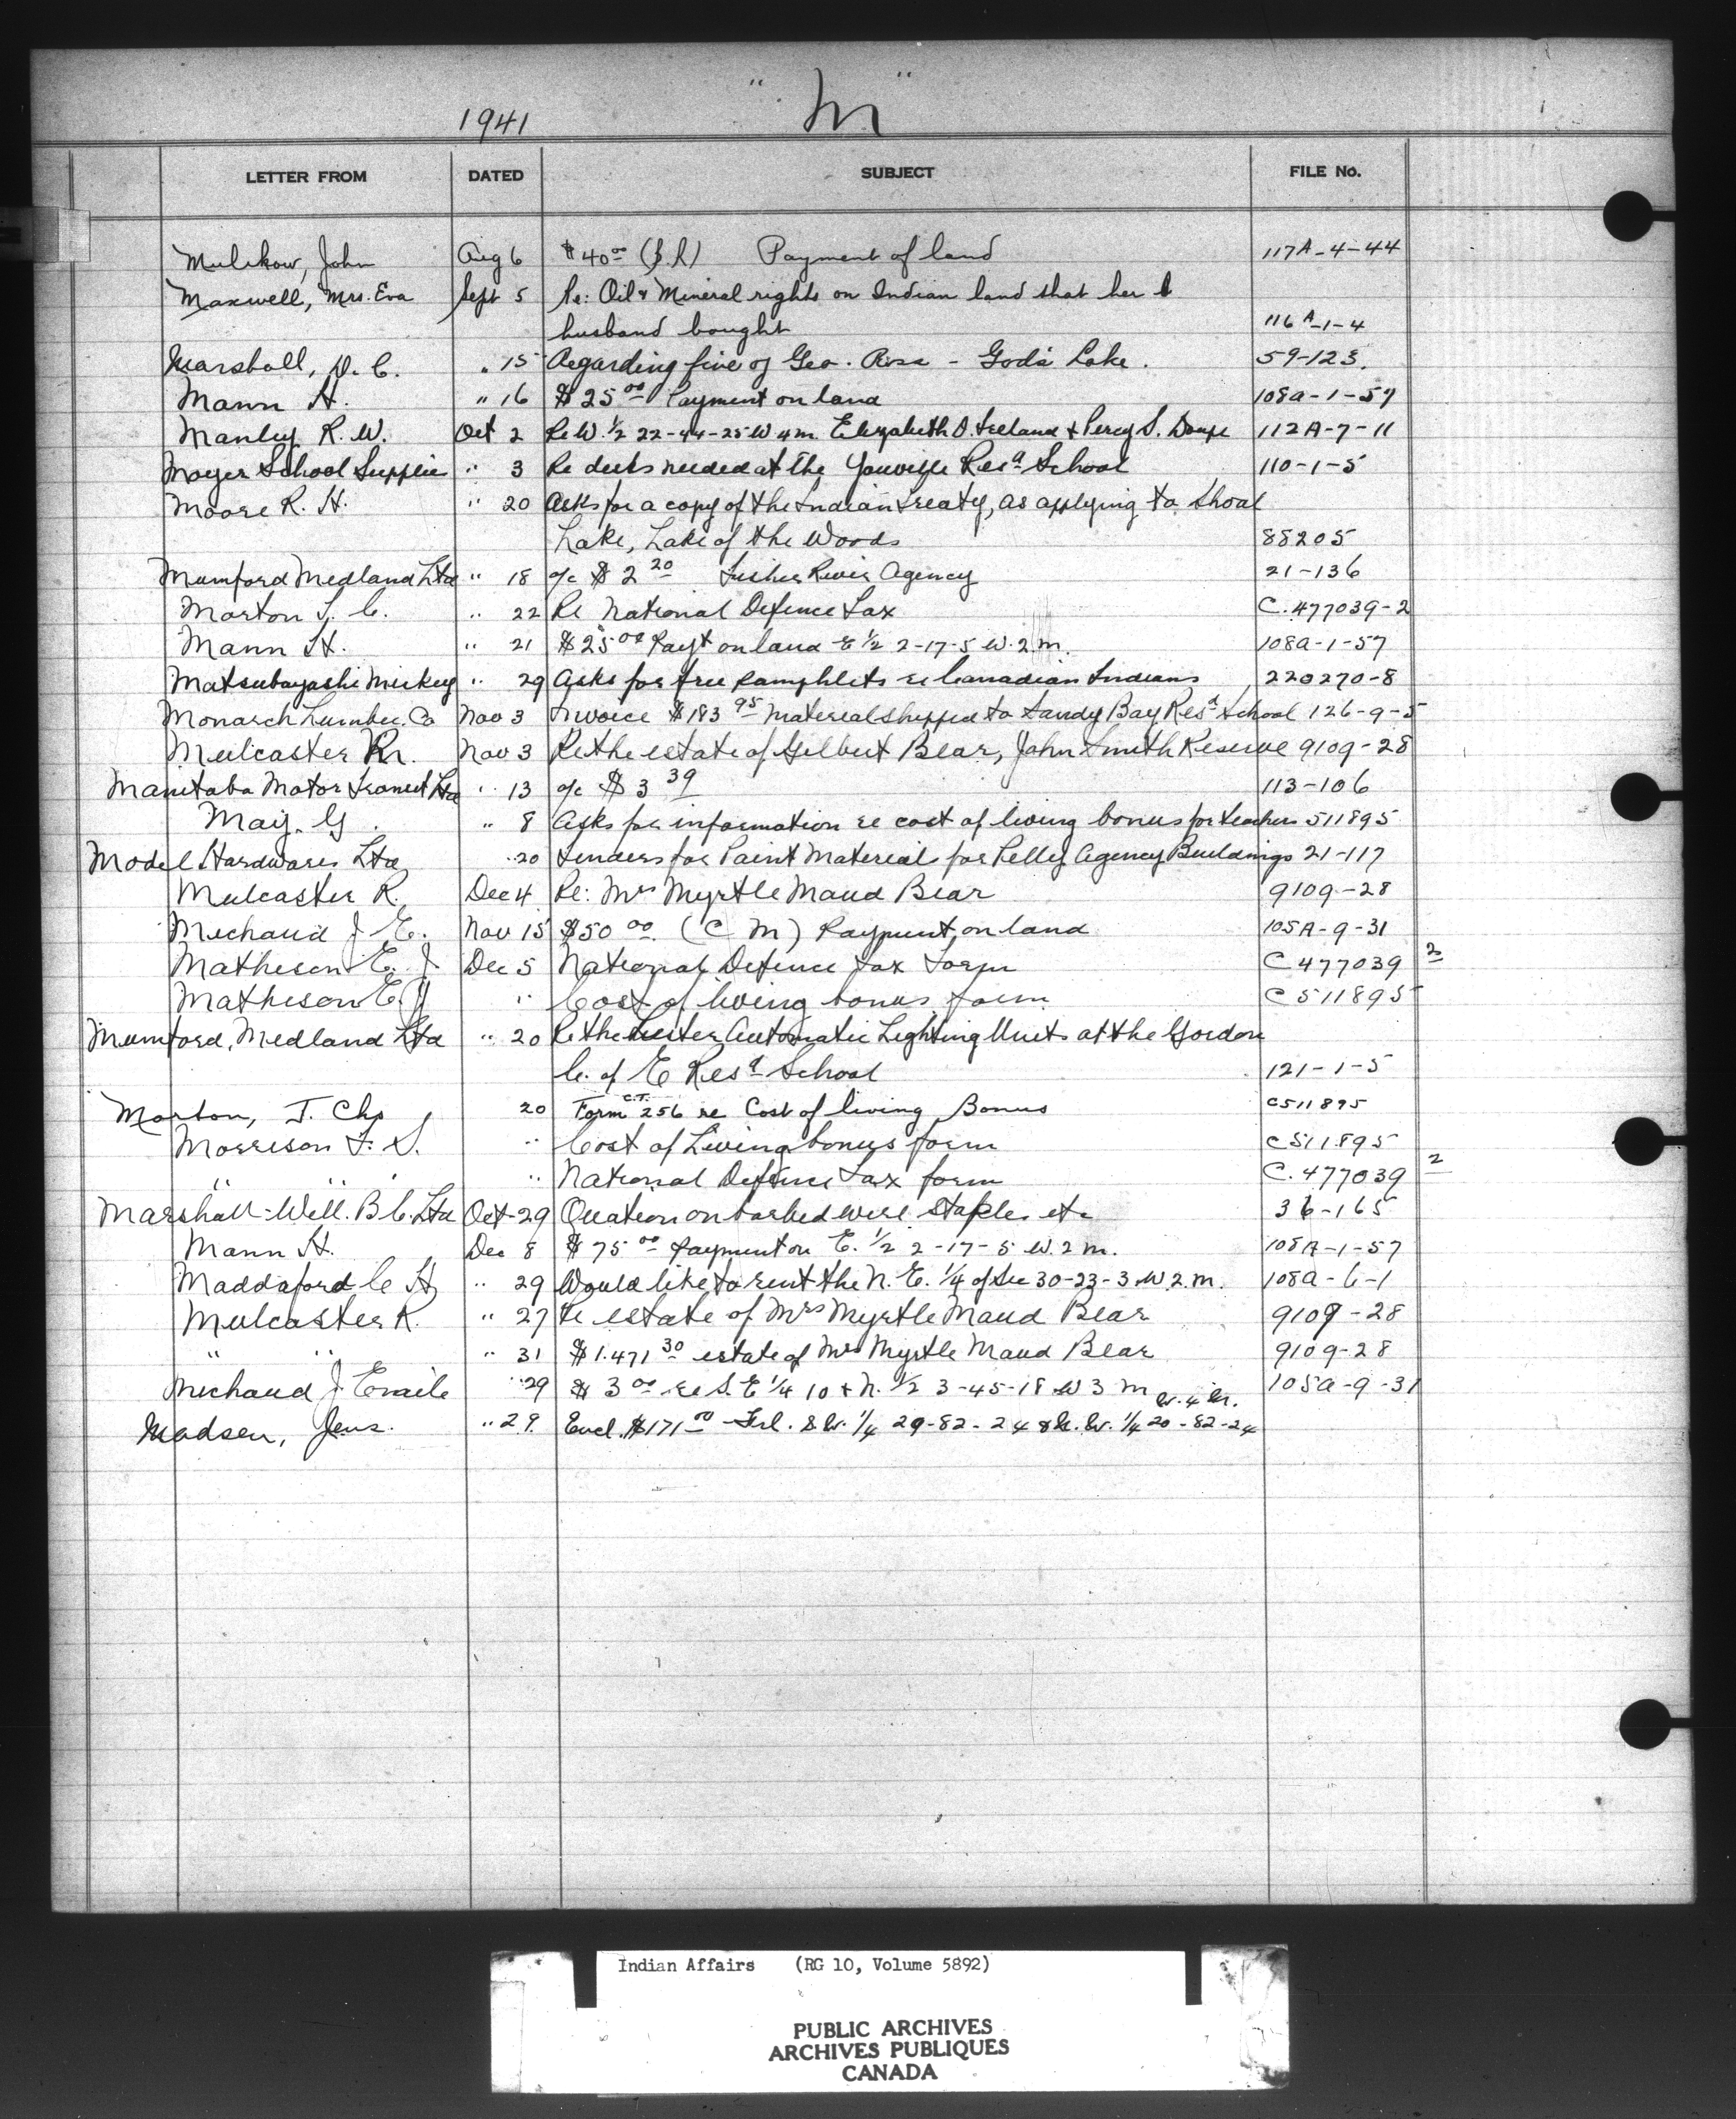 1941 " M "
LETTER FROM DATED SUBJECT FILE No.
Mulekow, John Aug 6 $40.00 (S.R) Payment of land 117A-4-44
Maxwell, Mrs. Eva Sept 5 Re: Oil & Mineral rights on Indian land that her
husband bought 116A-1-4
Marshall, D. C. " 15 Regarding fine of Geo. Ross - God's Lake. 59-123.
Mann H. " 16 $25 00 Payment on land 108a-1-57
Manley R. W. Oct 2 Re W. 1/2 22-44-25 W 4 m. Elizabeth O. Ireland & Percy S. 112A-7-11
Moyer School Supplies " 3 Re desks needed at the Youville Resd School 110-1-5
Moore R. H. " 20 Asks for a copy of the Indian treaty, as applying to Shoal
Lake, Lake of the Woods 88205
Mumford Medland Ltd " 18 a/c $2 20 Fisher River Agency 21-136
Morton T. C. " 22 Re National Defence Tax C.477039-2
Mann H. " 21 $25 00 Payt on land E 1/2 2-17-5 W. 2 m. 108a-1-57
Matsubayashi Mickey " 29 Asks for free pamphlets re Canadian Indians 220270-8
Monarch Lumber Co Nov 3 Invoice $183 95 material shipped to Sandy Bay Resd School 126-9-5
Mulcaster R. Nov 3 Re the estate of Gilbert Bear, John Smith Reserve 9109-28
Manitoba Motor Transit Ltd " 13 a/c $3 39 113-106
May. G. " 8 Asks for information re cost of living bonus for teachers 511895
Model Hardware Ltd " 20 Tenders for Paint Material for Pelly Agency Buildings 21-117
Mulcaster R. Dec 4 Re: Mrs Myrtle Maud Bear 9109-28
Michaud J E. Nov 15 $50 00. (C M) Payment on land 105A-9-31
Matheson E. J Dec 5 National Defence Tax Form C 477039 2
Matheson E. J " Cost of living bonus form C 511895
Mumford, Medland Ltd " 20 Re the Lister Automatic Lighting Units at the Gordon
C. of E Resd School 121-1-5
Morton, T. Chs 20 Form C.T. 256 re Cost of living Bonus C511895
Morrison F. S. " Cost of Living bonus form C511895
" " " National Defence Tax form C.477039 2
Marshall-Well. B C. Ltd Oct-29 Quation on barbed wire staples etc 36-165
Mann H. Dec 8 $75 00 Payment on E. 1/2 2-17-5 W. 2 m. 108A-1-57
Maddaford C H " 29 Would like to rent the N. E. 1/4 of Sec 30-23-3 W 2. m. 108a-6-1
Mulcaster R. " 27 Re estate of Mrs Myrtle Maud Bear 9109-28
" " " 31 $1.471 30 estate of Mrs Myrtle Maud Bear 9109-28
Michaud J. Emile " 29 $3 00 re S. E 1/4 10 & N. 1/2 3-45-18 W 3 M 105a-9-31
W. 6 M.
Madsen, Jens. " 29. Encl. $171 00 - Frl. S.W. 1/4 29-82-24 & N. W. 1/4 20-82-24
Indian Affairs (RG 10, Volume 5892)
PUBLIC ARCHIVES
ARCHIVES PUBLIQUES
CANADA